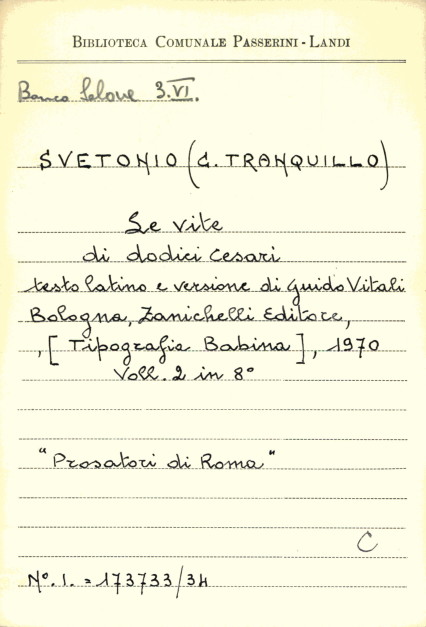 BIBLIOTECA COMUNALE PASSERINI - LANDI
Banco Salone 3.VI.
SVETONIO (C. TRANQUILLO)
Le vite
di dodici Cesari
testo latino e versione di Guido Vitali
Bologna, Zanichelli Editore,
, [Tipografia Babina], 1970
Voll. 2 in 8°
"Prosatori di Roma"
C
N°. I. = 173733/34